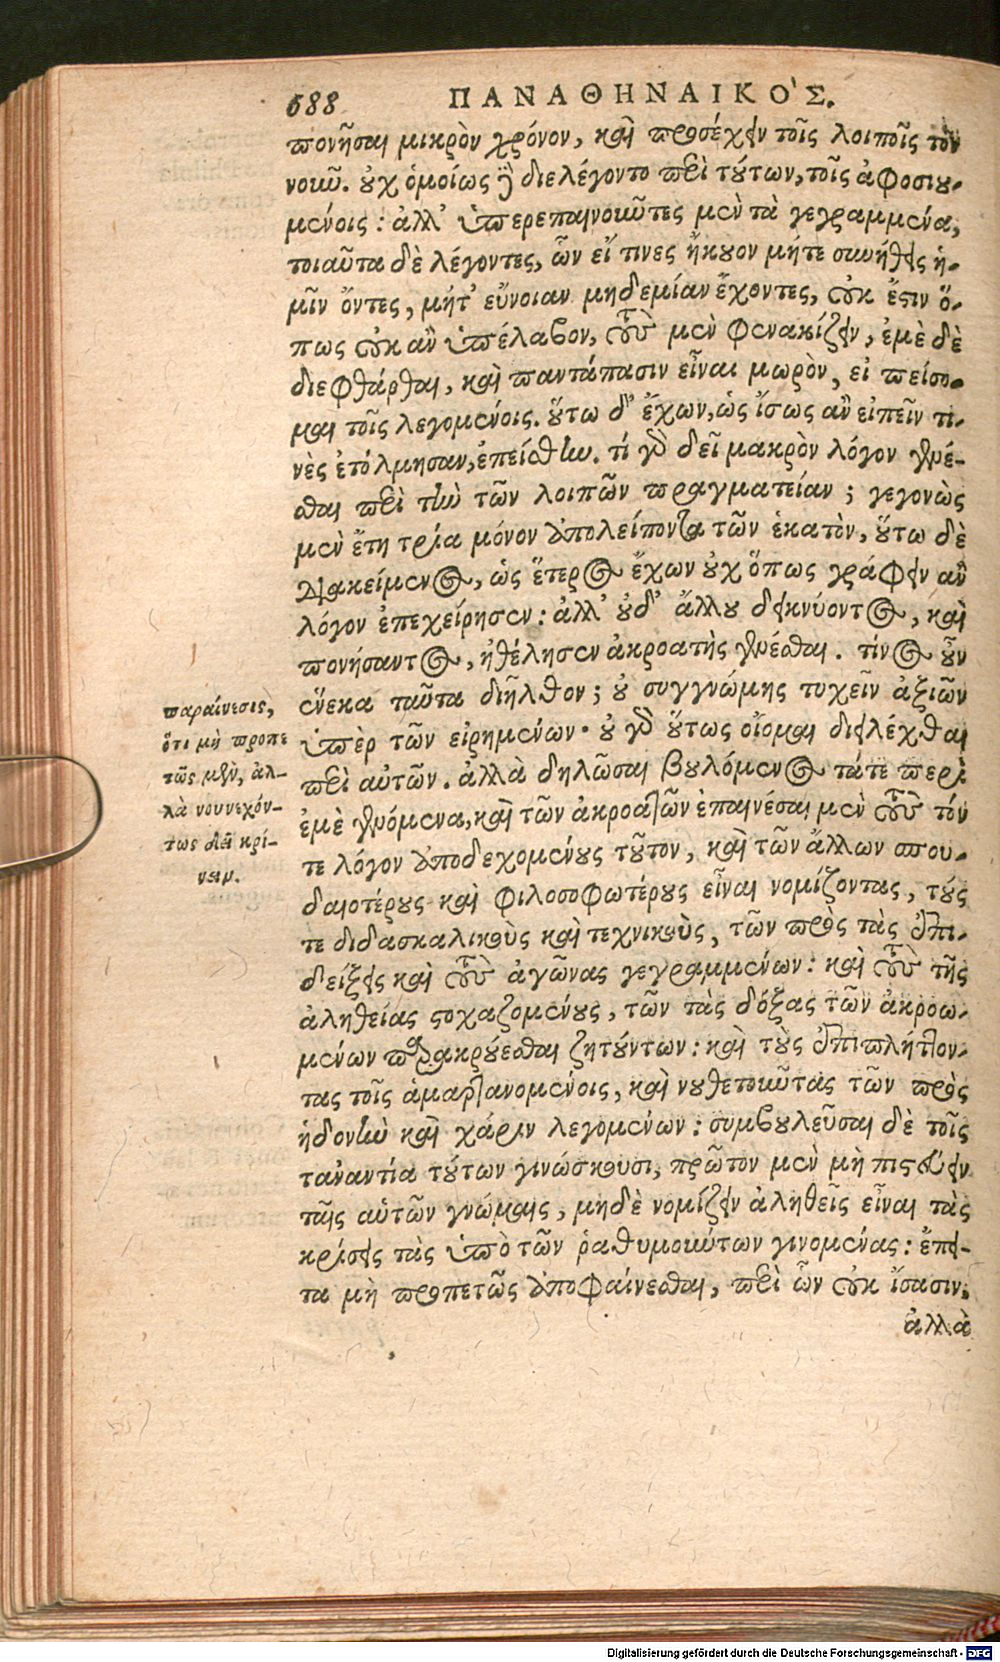 688 ΠΑΝΑΘΗΝΑΙΚΟ'Σ.
πονῆσαι μικρὸν χρόνον, καὶ προσέχειν τοῖς λοιποῖς τὸν
νοῦν. οὐχ ὁμοίως ἢ διελέγοντο περὶ τούτων, τοῖς ἀφοσιου-
μένοις : ἀλλ' ὑπερεπαινοῦντες μὲν τὰ γεγραμμένα,
τοιαῦτα δὲ λέγοντες, ὧν εἴ τινες ἤκουον μήτε συνήθεις ἡ-
μῖν ὄντες, μήτ' εὔνοιαν μηδεμίαν ἔχοντες, οὐκ ἔστιν ὅ-
πως οὐκ ἂν ὑπέλαβον, τοὺς μὲν φενακίζειν, ἐμὲ δὲ
διεφθάρθαι, καὶ παντάπασιν εἶναι μωρὸν, εἰ πείσο-
μαι τοῖς λεγομένοις. οὕτω δ' ἔχων, ὡς ἴσως ἂν εἰπεῖν τι-
νὲς ἐτόλμησαν, ἐπείσθην. τί γὰρ δεῖ μακρὸν λόγον γενέ-
σθαι περὶ τὴν τῶν λοιπῶν πραγματείαν ; γεγονὼς
μὲν ἔτη τρία μόνον ἀπολείποντα τῶν ἑκατὸν, οὕτω δὲ
διακείμενος, ὡς ἕτερος ἔχων οὐχ ὅπως γράφειν ἂν
λόγον ἐπεχείρησεν : ἀλλ' οὐδ' ἄλλου δεικνύοντος, καὶ
πονήσαντος, ἠθέλησεν ἀκροατὴς γενέσθαι. τίνος οὖν
ἕνεκα ταῦτα διῆλθον ; οὐ συγγνώμης τυχεῖν ἀξιῶν
ὑπὲρ τῶν εἰρημένων· οὐ γὰρ οὕτως οἴομαι διειλέχθαι
περὶ αὐτῶν. ἀλλὰ δηλῶσαι βουλόμενος τάτε περὶ
ἐμὲ γενόμενα, καὶ τῶν ἀκροατῶν ἐπαινέσαι μὲν τοὺς τόν
τε λόγον ἀποδεχομένους τοῦτον, καὶ τῶν ἄλλων σπου-
δαιοτέρους καὶ φιλοσοφωτέρους εἶναι νομίζοντας, τούς
τε διδασκαλικοὺς καὶ τεχνικοὺς, τῶν πρὸς τὰς ἐπι-
δείξεις καὶ τοὺς ἀγῶνας γεγραμμένων : καὶ τοὺς τῆς
ἀληθείας στοχαζομένους, τῶν τὰς δόξας τῶν ἀκροω-
μένων παρακρούεσθαι ζητούντων : καὶ τοὺς ἐπιπλήττον-
τας τοῖς ἁμαρτανομένοις, καὶ νουθετοῦντας τῶν πρὸς
ἡδονὴν καὶ χάριν λεγομένων : συμβουλεῦσαι δὲ τοῖς
τἀναντία τούτων γινώσκουσι, πρῶτον μὲν μὴ πιστεύειν
ταῖς αὑτῶν γνώμαις, μηδὲ νομίζειν ἀληθεῖς εἶναι τὰς
κρίσεις τὰς ὑπὸ τῶν ῥαθυμούντων γινομένας : ἔπει-
τα μὴ προπετῶς ἀποφαίνεσθαι, περὶ ὧν οὐκ ἴσασιν.
ἀλλὰ
παραίνεσις,
ὅτι μὴ προπε
τῶς μὲν, ἀλ-
λὰ νουνεχόν-
τως δεῖ κρί-
νειν.
Digitalisierung gefördert durch die Deutsche Forschungsgemeinschaft - DFG